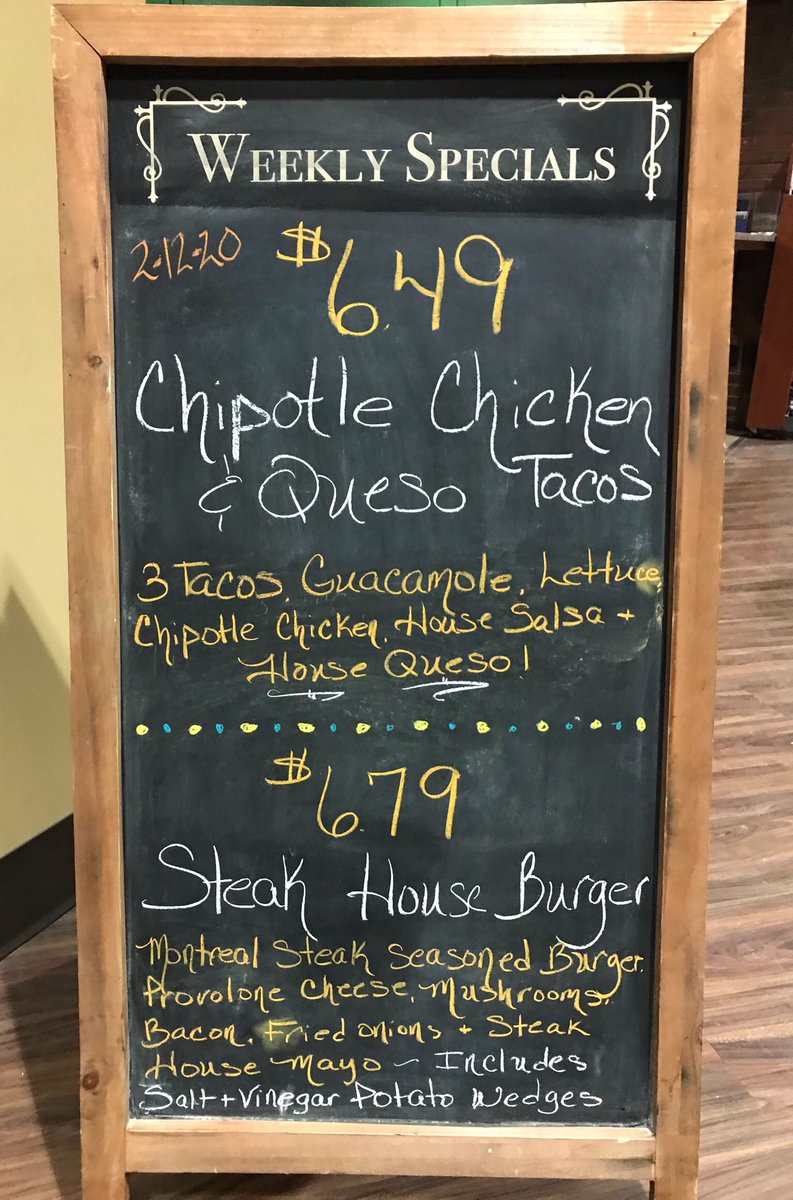 WEEKLY SPECIALS
2-12-20 $6.49
Chipotle Chicken
& Queso Tacos
3 Tacos, Guacamole, Lettuce,
Chipotle Chicken, House Salsa +
House Queso!
$6.79
Steak House Burger
Montreal Steak Seasoned Burger,
Provolone Cheese, Mushrooms,
Bacon, Fried onions + Steak
House Mayo - Includes
Salt + Vinegar Potato Wedges